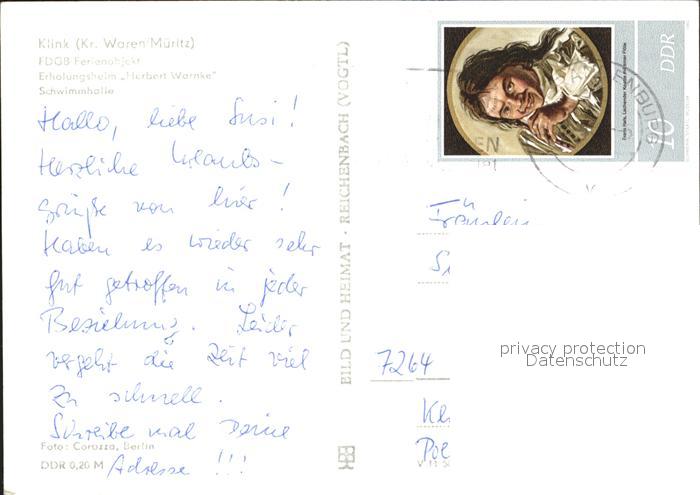 Klink (Kr. Waren/Müritz)
FDGB-Ferienobjekt
Erholungsheim „Herbert Warnke"
Schwimmhalle
Hallo, liebe Susi!
Herzliche Urlaubs-
grüße von hier!
Haben es wieder sehr
gut getroffen in jeder
Beziehung. Leider
vergeht die Zeit viel
zu schnell.
Schreibe mal Deine
Adresse !!!
Foto: Corazza, Berlin
DDR 0,20 M
BILD UND HEIMAT · REICHENBACH (VOGTL)
DDR
10
Fräulein
7264
privacy protection
Datenschutz